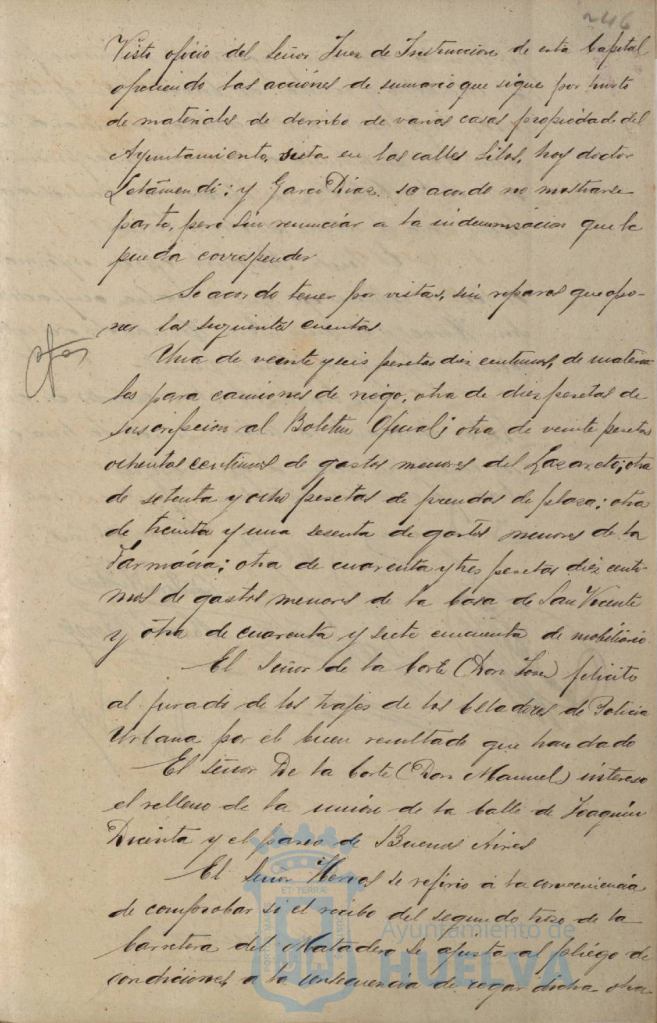 246
Visto oficio del Señor Juez de Instruccion de esta Capital
ofreciendo las acciónes de sumario que sigue por hurto
de materiales de derribo de varias casas propiedad del
Ayuntamiento, en las calles Silos, hoy doctor
Letámendi; y Garci Diaz. se acordo no mostrarse
parte, pero sin renunciar a la indemnizacion que le
pueda corresponder
Se acordo tener por vistas, sin reparos que opo-
ner las siguientes cuentas
Una de veinte y seis pesetas diez centimos, de materia-
les para camiones de riego, otra de diez pesetas de
suscripcion al Boletin Oficial; otra de veinte pesetas
ochenta centimos de gastos menores del Lazareto; otra
de setenta y ocho pesetas de prendas de plaza; otra
de treinta y una sesenta de gastos menores de la
Farmácia; otra de cuarenta y tres pesetas diez centi-
mos de gastos menores de la Casa de San Vicente
y otra de cuarenta y siete cincuenta de mobiliario
El Señor de la Corte (Don José) felicito
al jurado de los trajes de los Celadores de Policia
Urbana por el buen resultado que han dado
El señor De la Corte (Don Manuel) intereso
el relleno de la unión de la Calle de Joaquin
Dicenta y el paseo de Buenos Aires
El Señor se refirio á la conveniencia
de comprobar si el recibo del segundo trozo de la
Carretera del Matadero se ajusta al pliego de
condiciones, a la consecuencia de dicha obra
ET TERRÆ
Ayuntamiento de
HUELVA